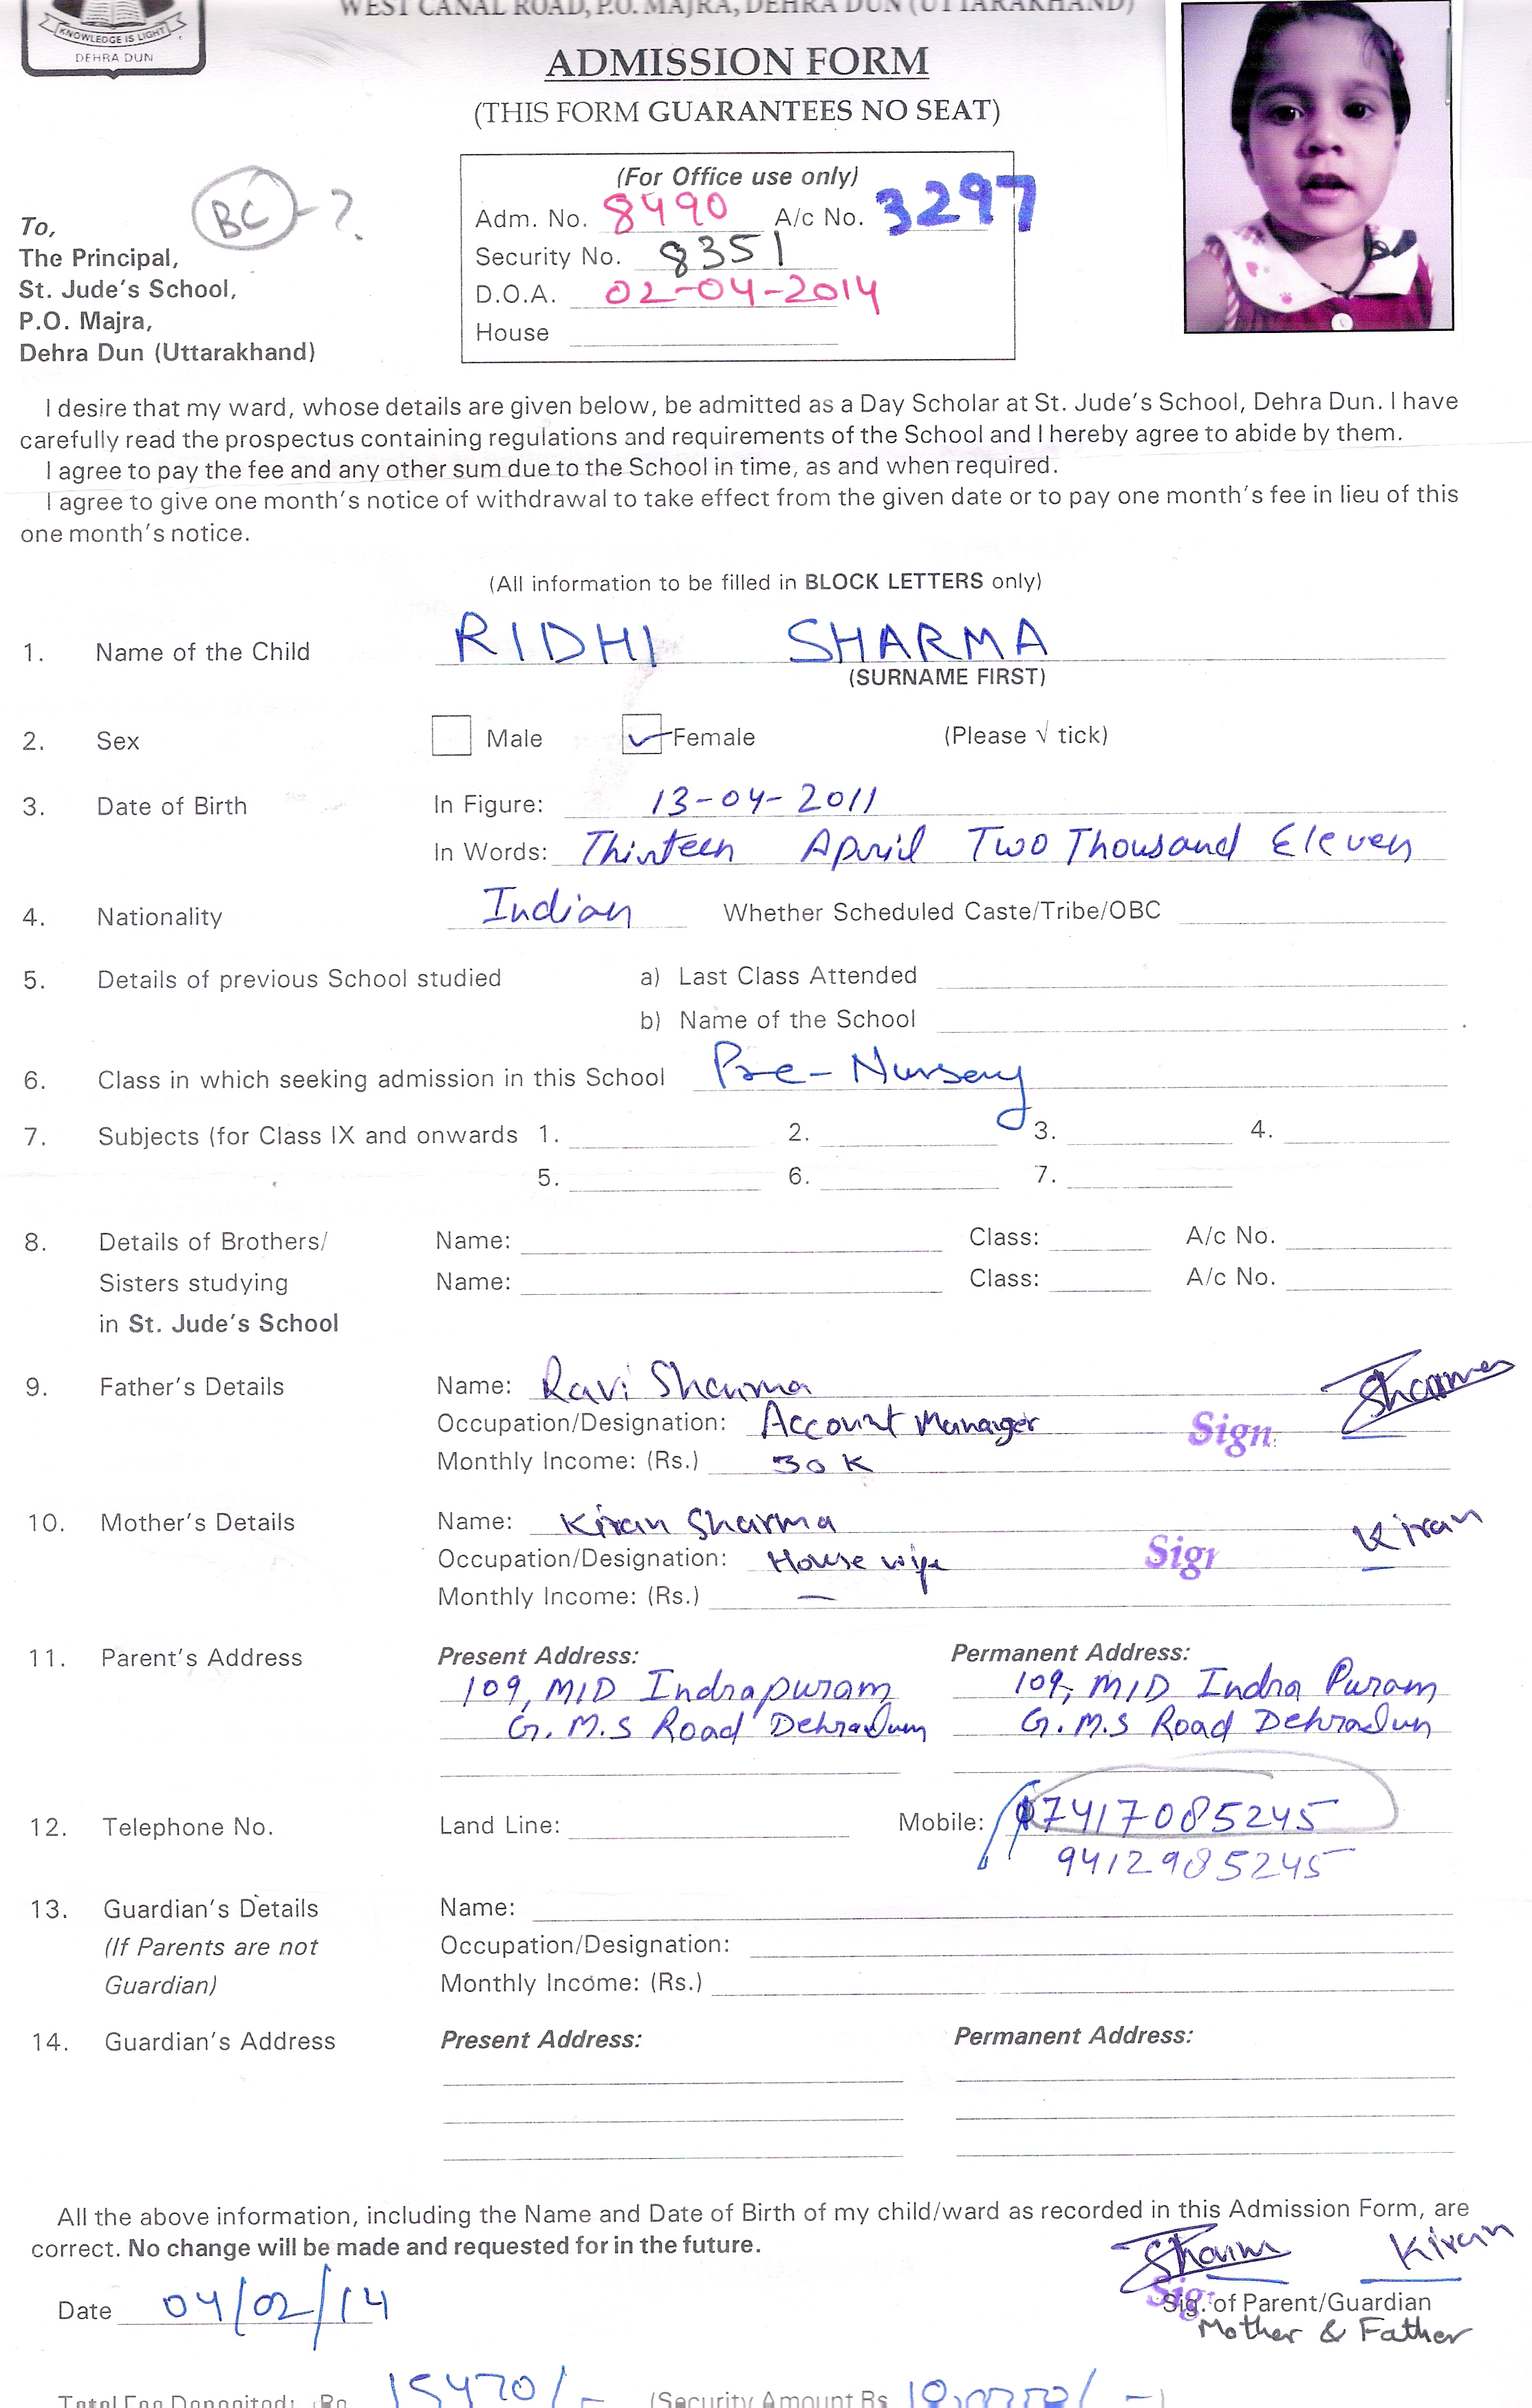 WEST CANAL ROAD, P.O. MAJRA, DEHRA DUN (UTTARAKHAND)
KNOWLEDGE IS LIGHT
DEHRA DUN
ADMISSION FORM
(THIS FORM GUARANTEES NO SEAT)
BC - ?
(For Office use only)
Adm. No. 8490 A/c No. 3297
Security No. 8351
D.O.A. 02-04-2014
House
To,
The Principal,
St. Jude's School,
P.O. Majra,
Dehra Dun (Uttarakhand)
I desire that my ward, whose details are given below, be admitted as a Day Scholar at St. Jude's School, Dehra Dun. I have
carefully read the prospectus containing regulations and requirements of the School and I hereby agree to abide by them.
I agree to pay the fee and any other sum due to the School in time, as and when required.
I agree to give one month's notice of withdrawal to take effect from the given date or to pay one month's fee in lieu of this
one month's notice.
(All information to be filled in BLOCK LETTERS only)
1. Name of the Child RIDHI SHARMA
(SURNAME FIRST)
2. Sex Male ✓ Female (Please √ tick)
3. Date of Birth In Figure: 13-04-2011
In Words: Thirteen April Two Thousand Eleven
4. Nationality Indian Whether Scheduled Caste/Tribe/OBC
5. Details of previous School studied a) Last Class Attended
b) Name of the School
6. Class in which seeking admission in this School Pre-Nursery
7. Subjects (for Class IX and onwards 1. 2. 3. 4.
5. 6. 7.
8. Details of Brothers/ Name: Class: A/c No.
Sisters studying Name: Class: A/c No.
in St. Jude's School
9. Father's Details Name: Ravi Sharma Sharma
Occupation/Designation: Account Manager Sign.
Monthly Income: (Rs.) 30 K
10. Mother's Details Name: Kiran Sharma Kiran
Occupation/Designation: House wife Sign
Monthly Income: (Rs.) —
11. Parent's Address Present Address: Permanent Address:
109, MID Indrapuram 109, MID Indra Puram
G.M.S Road Dehradun G.M.S Road Dehradun
12. Telephone No. Land Line: Mobile: 7417085245
9412985245
13. Guardian's Details Name:
(If Parents are not Occupation/Designation:
Guardian) Monthly Income: (Rs.)
14. Guardian's Address Present Address: Permanent Address:
All the above information, including the Name and Date of Birth of my child/ward as recorded in this Admission Form, are
correct. No change will be made and requested for in the future.
Sharma Kiran
Date 04/02/14 Sig. of Parent/Guardian
Mother & Father
Total Fee Deposited: Rs 15470/- (Security Amount Rs